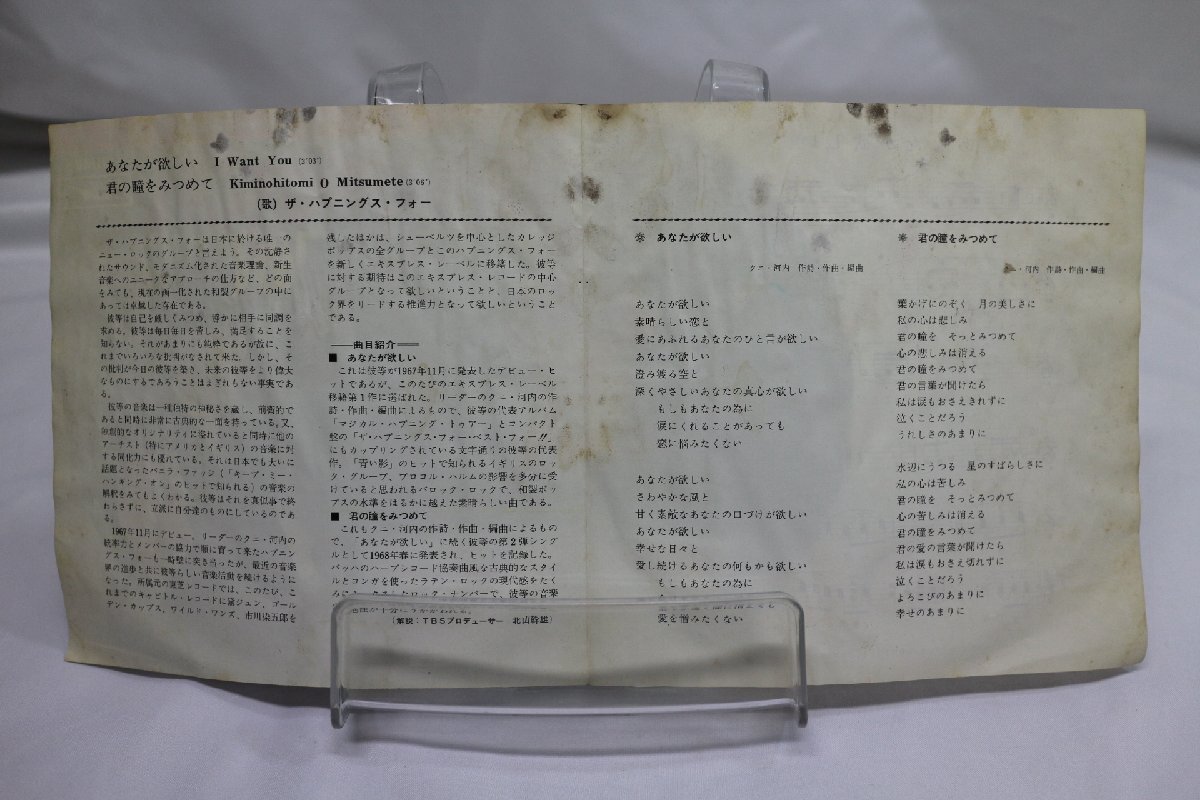 あなたが欲しい I Want You (3'03")
君の瞳をみつめて Kiminohitomi O Mitsumete (3'06")
(歌) ザ・ハプニングス・フォー
ザ・ハプニングス・フォーは日本に於ける唯一の
ニュー・ロックのグループと言えよう。その沈静さ
れたサウンド、モダニズム化された音楽理論、新生
音楽へのユニークなアプローチの仕方など、どの面
をみても、現在の画一化された和製グループの中に
あっては卓越した存在である。
彼等は自己を厳しくみつめ、静かに相手に同調を
求める。彼等は毎日毎日を苦しみ、満足することを
知らない。それがあまりにも純粋であるが故に、こ
れまでいろいろな批判がなされて来た。しかし、そ
の批判が今日の彼等を築き、未来の彼等をより偉大
なものにするであろうことはまぎれもない事実であ
る。
彼等の音楽は一種独特の神秘さを蔵し、前衛的で
あると同時に非常に古典的な一面を持っている。又、
独創的なオリジナリティに溢れていると同時に他の
アーチスト(特にアメリカとイギリス)の音楽に対
する同化力にも優れている。それは日本でも大いに
話題となったバニラ・ファッジ(「キープ・ミー・
ハンギング・オン」のヒットで知られる)の音楽の
解釈をみてもよくわかる。彼等はそれを真似事で終
わらさずに、立派に自分達のものにしているのであ
る。
1967年11月にデビュー、リーダーのクニ・河内の
統率力とメンバーの協力で順に育って来たハプニン
グス・フォーも一時壁に突き当ったが、最近の音楽
界の進歩と共に彼等らしい音楽活動を続けるように
なった。所属元の東芝レコードでは、このたび、こ
れまでのキャピトル・レコードに黛ジュン、ゴール
デン・カップス、ワイルド・ワンズ、市川染五郎を
残したほかは、シューベルツを中心としたカレッジ
ポップスの全グループとこのハプニングス・フォー
を新しくエキスプレス・レーベルに移籍した。彼等
に対する期待はこのエキスプレス・レコードの中心
グループとなって欲しいということと、日本のロッ
ク界をリードする推進力となって欲しいということ
である。
──曲目紹介──
■ あなたが欲しい
これは彼等が1967年11月に発表したデビュー・ヒ
ットであるが、このたびのエキスプレス・レーベル
移籍第1作に選ばれた。リーダーのクニ・河内の作
詩・作曲・編曲によるもので、彼等の代表アルバム
「マジカル・ハプニング・トゥアー」とコンパクト
盤の「ザ・ハプニングス・フォー・ベスト・フォー!!」
にもカップリングされている文字通りの彼等の代表
作。「青い影」のヒットで知られるイギリスのロッ
ク・グループ、プロコル・ハルムの影響を多分に受
けていると思われるバロック・ロックで、和製ポッ
プスの水準をはるかに越えた素晴らしい曲である。
■ 君の瞳をみつめて
これもクニ・河内の作詩・作曲・編曲によるもの
で、「あなたが欲しい」に続く彼等の第2弾シング
ルとして1968年春に発表され、ヒットを記録した。
バッハのハープシコード協奏曲風な古典的なスタイ
ルとコンガを使ったラテン・ロックの現代感をたく
みにミックスしたロック・ナンバーで、彼等の音楽
(解説:TBSプロデューサー 北山幹雄)
※ あなたが欲しい
クニ・河内 作詩・作曲・編曲
あなたが欲しい
素晴らしい恋と
愛にあふれるあなたのひと言が欲しい
あなたが欲しい
澄み渡る空と
深くやさしいあなたの真心が欲しい
もしもあなたの為に
涙にくれることがあっても
恋に悩みたくない
あなたが欲しい
さわやかな風と
甘く素敵なあなたの口づけが欲しい
あなたが欲しい
幸せな日々と
愛し続けるあなたの何もかも欲しい
もしもあなたの為に
愛を憎みたくない
※ 君の瞳をみつめて
クニ・河内 作詩・作曲・編曲
葉かげにのぞく 月の美しさに
私の心は悲しみ
君の瞳を そっとみつめて
心の悲しみは消える
君の瞳をみつめて
君の言葉が聞けたら
私は涙もおさえきれずに
泣くことだろう
うれしさのあまりに
水辺にうつる 星のすばらしさに
私の心は苦しみ
君の瞳を そっとみつめて
心の苦しみは消える
君の瞳をみつめて
君の愛の言葉が聞けたら
私は涙もおさえ切れずに
泣くことだろう
よろこびのあまりに
幸せのあまりに